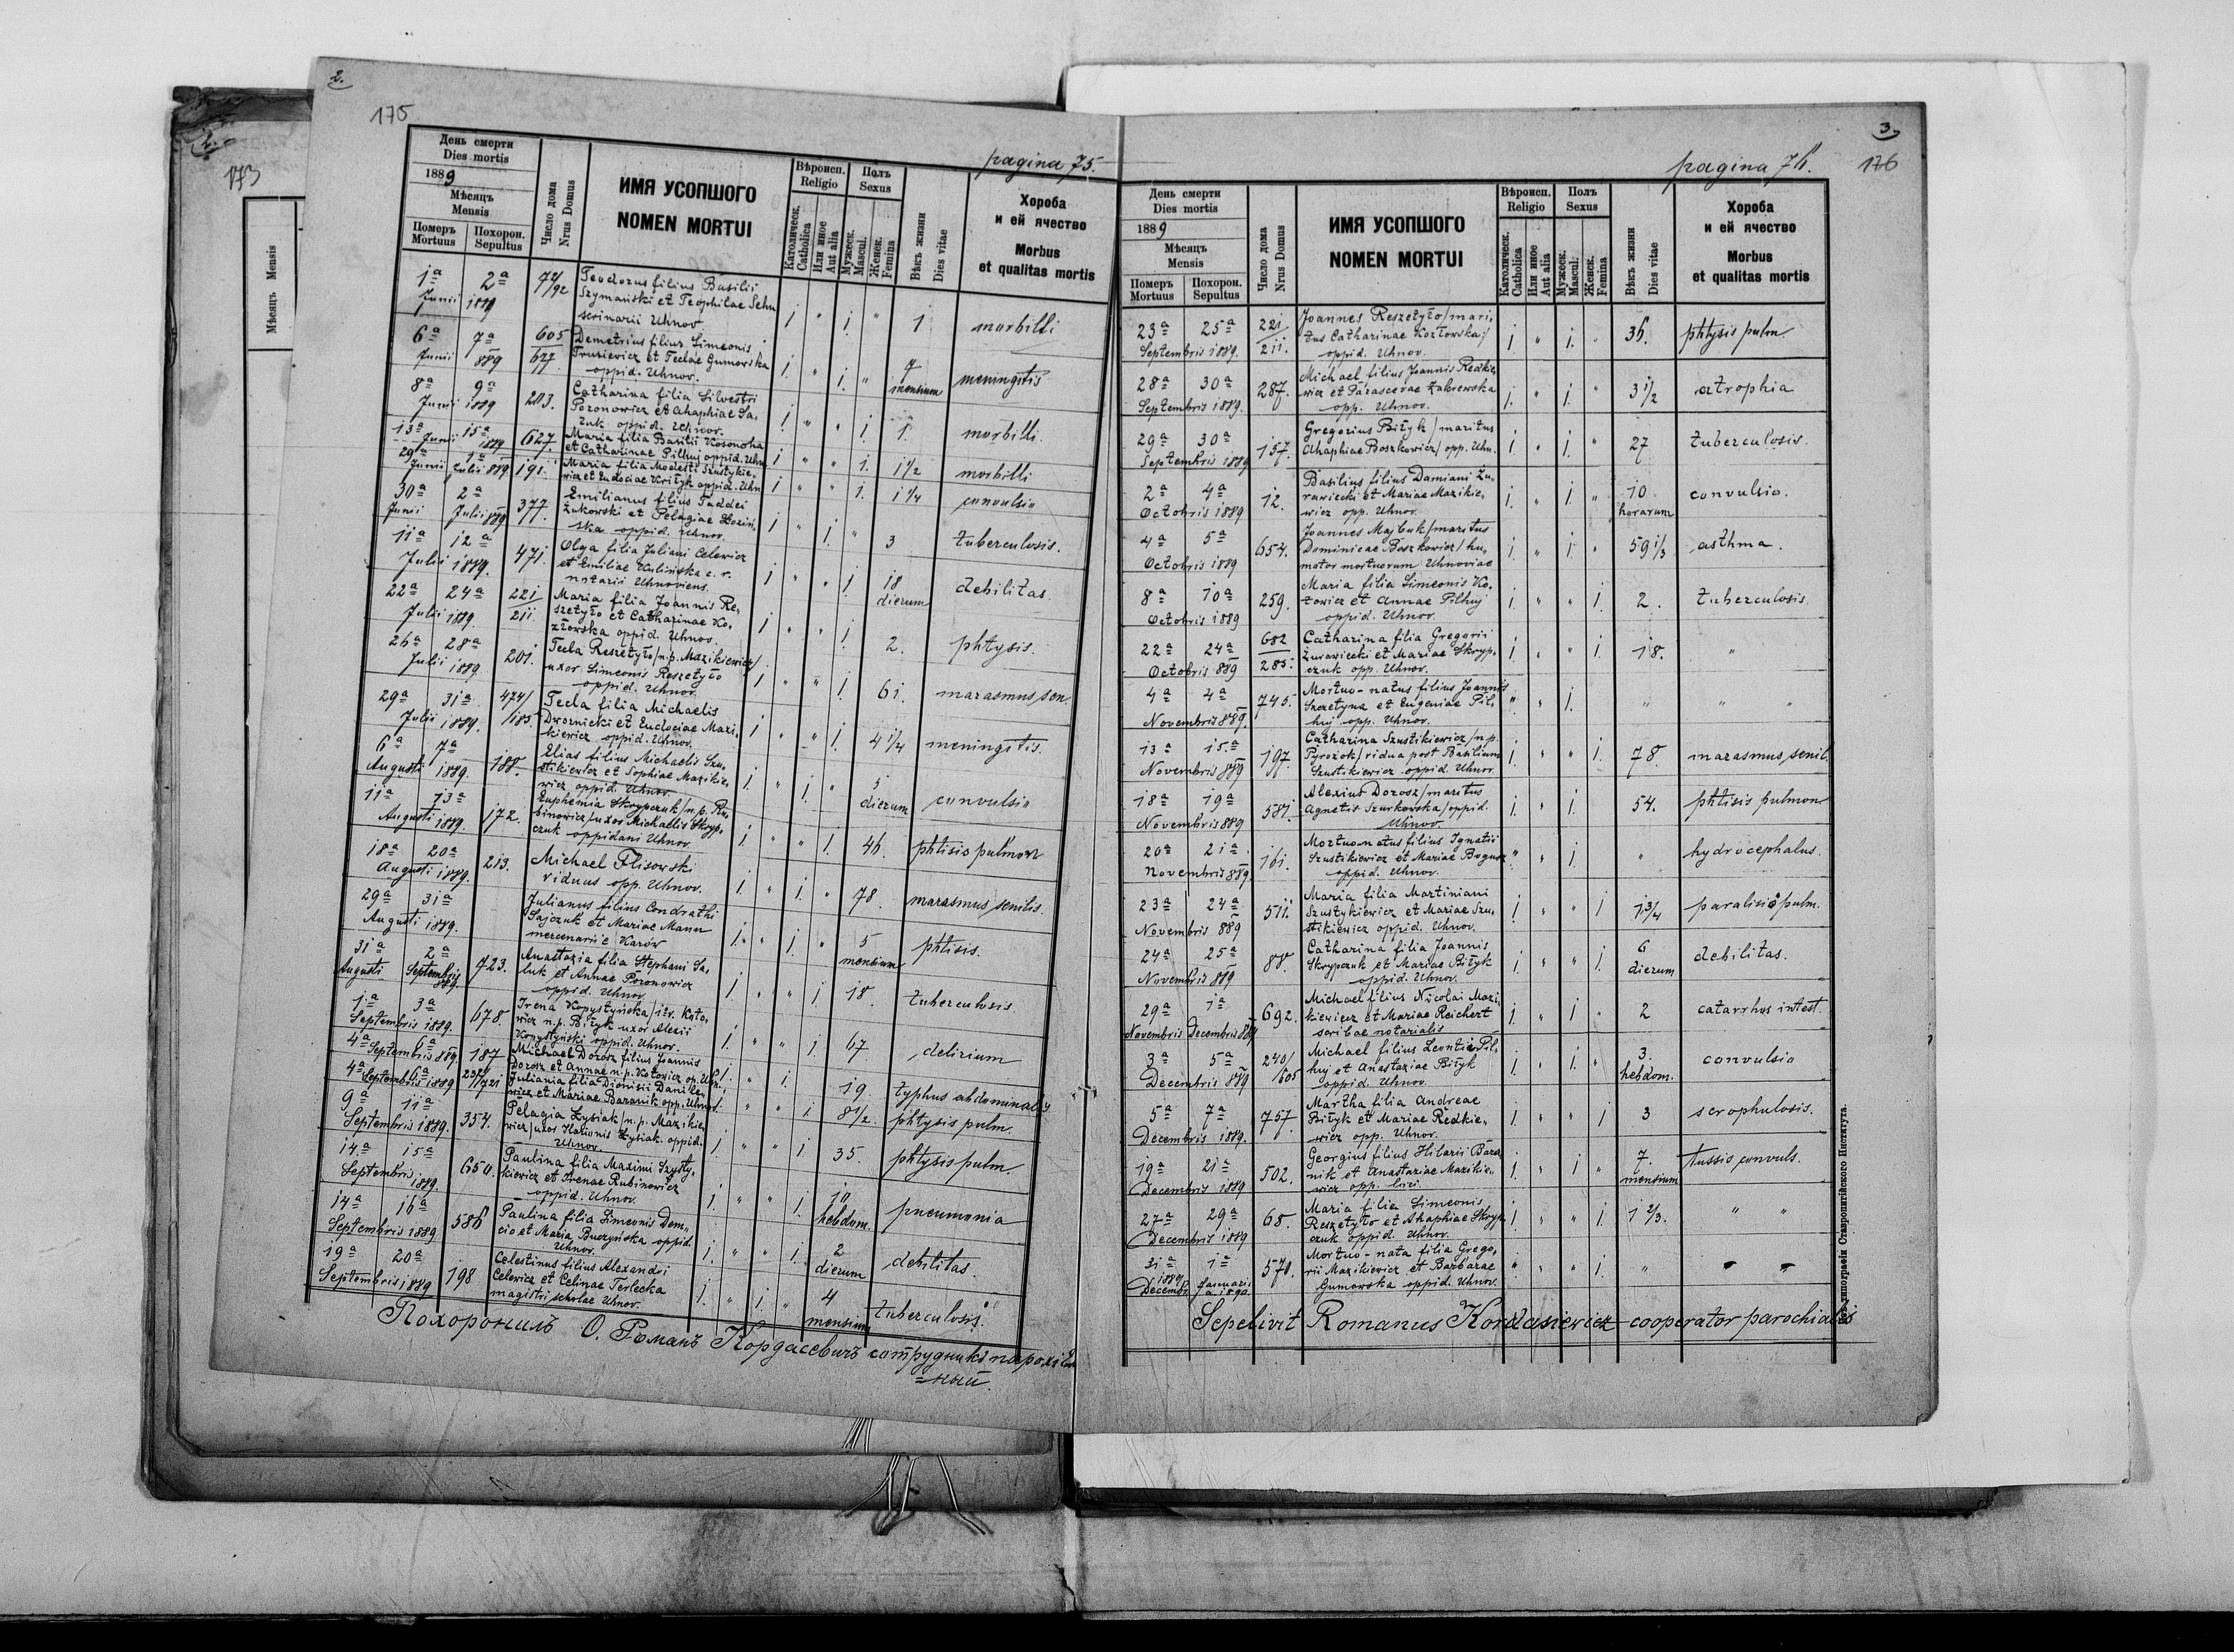 2.
173
Мѣсяцъ Mensis
2.
175
pagina 75.
День смерти
Dies mortis
1889
Мѣсяцъ
Mensis
Померъ
Mortuus
Похорон.
Sepultus
Число дома
Nrus Domus
ИМЯ УСОПШОГО
NOMEN MORTUI
Вѣроисп.
Religio
Католическ.
Catholica
Или иное
Aut alia
Полъ
Sexus
Мужеск.
Mascul.
Женск.
Femina
Вѣкъ жизни
Dies vitae
Хороба
и ей ячество
Morbus
et qualitas mortis
1a 2a 72/92 Teodorus filius Basilii
Junii 1889 Szymański et Teophilae Sehn
scrinarii Uhnov 1 " 1 " 1 morbilli
6a 7a 605 Demetrius filius Simeonis
Junii 889 627 Trusiewicz et Teclae Gumowska
oppid. Uhnov. 1. " 1. " mensium meningitis
8a 9a 203. Catharina filia Silvestri
Junii 1889 Poronowicz et Ahaphiae Sa-
luk oppid. Uhnov. 1 " " 1 1. morbilli.
13a 15a 627. Maria filia Basilii Kosonoha
Junii 1889 et Catharinae Pilhuj oppid. Uhn. 1 " " 1. 1 1/2 morbilli
29a 1a 191. Maria filia Modesti Szustykie-
Junii Julii 889 wicz et Eudociae Kryłyk oppid. Uhn 1 " " 1. 1 1/4 convulsio
30a 2a 377. Emilianus filius Taddei
Junii Julii 889 Żukowski et Pelagiae
ska oppid. Uhnov. 1 " 1. " 3 tuberculosis.
11a 12a 471. Olga filia Juliani Celewicz
Julii 1889. et Emiliae Kulińska c. r.
notarii Uhnoviens. 1 " " 1 18 dierum debilitas
22a 24a 221 Maria filia Joannis Re-
Julii 1889. 211. szetyło et Catharinae Ko-
złowska oppid. Uhnov. 1 " " 1. 2. phtysis.
26a 28a 201. Tecla Reszetyło /n.p. Mazikiewicz/
Julii 1889. uxor Simeonis Reszetyło
oppid. Uhnov. 1 " " 1. 61. marasmus sen.
29a 31a 474/185 Tecla filia Michaelis
Julii 1889. Dwornicki et Eudociae Mazi-
kiewicz oppid. Uhnov. 1 " " 1 4 1/4 meningitis.
6a 7a 188. Elias filius Michaelis Szu-
Augusti 1889. stikiewicz et Sophiae Mazikie-
wicz oppid. Uhnov. 1. " 1. " 5 dierum convulsio
11a 13a 172. Euphemia Skrypczuk /n.p. Ru-
Augusti 1889. binowicz/ uxor Michaelis Skryp-
czuk oppidani Uhnov. 1. " " 1. 46. phtisis pulmon
18a 20a 213. Michael Flisowski
Augusti 1889. viduus opp. Uhnov. 1. " 1. " 78. marasmus senilis.
29a 31a Julianus filius Condrathi
Augusti 1889. Sajczuk et Mariae Mann
mercenarii e Karów 1. " 1. " 5 mensium phtisis.
31a 2a 723. Anastazia filia Stephani Sa-
Augusti Septembris 889. luk et Annae Poronowicz
oppid. Uhnov. 1 " " 1 18. tuberculosis.
1.a 3a 678. Irena Kopystyńska /1o v. Koto-
Septembris 1889. wicz n.p. Biłyk uxor Alexii
Kopystyński oppid. Uhnov. 1. " " 1. 67 delirium
4a 6a 187 Michael Dorosz filius Joannis
Septembris 889. Dorosz et Annae n.p. Kotowicz op. Uhn. 1. " 1. 19. typhus abdominalis
4a 6a 232/721 Juliania filia Dionisii Danile-
Septembris 1889 wicz et Mariae Baranik opp. Uhnov. 1. " " 1 8 1/2. phtysis pulm.
9a 11a 354. Pelagia Łysiak /n.p. Mazikie-
Septembris 1889. wicz/ uxor Ilarionis Łysiak. oppid.
Uhnov. 1. " " 1 35. phtysis pulm
14.a 15a 650. Paulina filia Maximi Szysty-
Septembris 1889. kiewicz et Irenae Rubinowicz
oppid. Uhnov. 1. " " 1. 10 hebdom. pneumonia
14a 16a 586 Paulina filia Simeonis Dem-
Septembris 1889 cio et Maria Buczyńska oppid.
Uhnov. 1. " " 1. 2 dierum debilitas.
19a 20a 198. Celestinus filius Alexandri
Septembris 1889 Celewicz et Celinae Terlecka
magistri scholae Uhnov. 1. " 1. " 4 mensium tuberculosis.
Похоронилъ О. Романъ Кордасевичъ сотрудникъ парохіаль
=ный.
3.
176
pagina 76.
День смерти
Dies mortis
1889
Мѣсяцъ
Mensis
Померъ
Mortuus
Похорон.
Sepultus
Число дома
Nrus Domus
ИМЯ УСОПШОГО
NOMEN MORTUI
Вѣроисп.
Religio
Католическ.
Catholica
Или иное
Aut alia
Полъ
Sexus
Мужеск.
Mascul.
Женск.
Femina
Вѣкъ жизни
Dies vitae
Хороба
и ей ячество
Morbus
et qualitas mortis
23a 25a 221 Joannes Reszetyło /mari-
Septembris 1889. 211. tus Catharinae Kozłowska/
oppid. Uhnov. 1 " 1. " 36. phtysis pulm.
28a 30a 287. Michael filius Joannis Redkie-
Septembris 1889. wicz et Parascevae Zakrewska
opp. Uhnov. 1. " 1. " 3 1/2 atrophia
29a 30a 157. Gregorius Biłyk /maritus
Septembris 1889 Ahaphiae Boszkowicz/ opp. Uhn. 1 " 1 " 27 tuberculosis.
2a 4a 12. Basilius filius Damiani Żu-
Octobris 1889 rawiecki et Mariae Mazikie-
wicz opp. Uhnov. 1. " 1 " 10 horarum convulsio.
4a 5a 654. Joannes Majbuk /maritus
Octobris 1889 Dominicae Boszkowicz/ hu-
mator mortuorum Uhnoviae 1. " 1. " 59 1/3 asthma.
8a 10a 259. Maria filia Simeonis Ko-
Octobris 1889 towicz et Annae Pilhuj
oppid. Uhnov. 1. " " 1. 2. tuberculosis.
22a 24a 682 Catharina filia Gregorii
Octobris 889 285. Żurawiecki et Mariae Skryp-
czuk opp. Uhnov. 1. " " 1. 18. "
4a 4a 745. Mortuo-natus filius Joannis
Novembris 889. Szeretyna et Eugeniae Pil-
huj opp. Uhnov. " " 1. " " "
13a 15.a 197. Catharina Szustikiewicz /n.p.
Novembris 889 Pyrożok/ vidua post Basilium
Szustikiewicz oppid. Uhnov. 1. " " 1. 78. marasmus senil.
18a 19a 581. Alexius Dorosz /maritus
Novembris 889 Agnetis Szurkowska/ oppid.
Uhnov. 1. " 1. 54. phtisis pulmon
20a 21a 161. Mortuo natus filius Ignatii
Novembris 889. Szustikiewicz et Mariae Bogusz
oppid. Uhnov. " " 1. " hydrocephalus.
23a 24a 511. Maria filia Martiniani
Novembris 889 Szustykiewicz et Mariae Szu-
stikiewicz oppid. Uhnov. 1 " " 1 1 3/4 paralisis pulm.
24a 25a 88. Catharina filia Joannis
Novembris 889 Skrypczuk et Mariae Biłyk
oppid. Uhnov. 1 " " 1. 6 dierum debilitas.
29a 1a 692. Michael filius Nicolai Mazi-
Novembris Decembris 889 kiewicz et Mariae Reichert
scribae notarialis 1. " 1 " 2 catarrhus intest.
3a 5a 240/605 Michael filius Leontii Pil-
Decembris 889 huj et Anastaziae Biłyk
oppid. Uhnov. 1. " 1. " 3. hebdom. convulsio
5a 7a 757. Martha filia Andreae
Decembris 1889. Biłyk et Mariae Redkie-
wicz opp. Uhnov. 1. " " 1 3 scrophulosis.
19a 21a 502. Georgius filius Hilarii Bara
Decembris 1889 nik et Anastaziae Mazikie-
wicz opp. 1. " 1 " 7. mensium tussis convuls.
27a 29a 68. Maria filia Simeonis
Decembris 1889 Reszetyło et Ahaphiae Skryp-
czuk oppid. Uhnov. 1. " " 1. 1 2/3. " "
31a 1a 570. Mortuo-nata filia Grego-
1889 Decembr. Januarii a. 1890. rii Mazikiewicz et Barbarae
Gumowska oppid. Uhnov. " " " 1. " " "
Sepelivit Romanus Kordasiewicz cooperator parochialis
типографіи Ставропигійского Института.